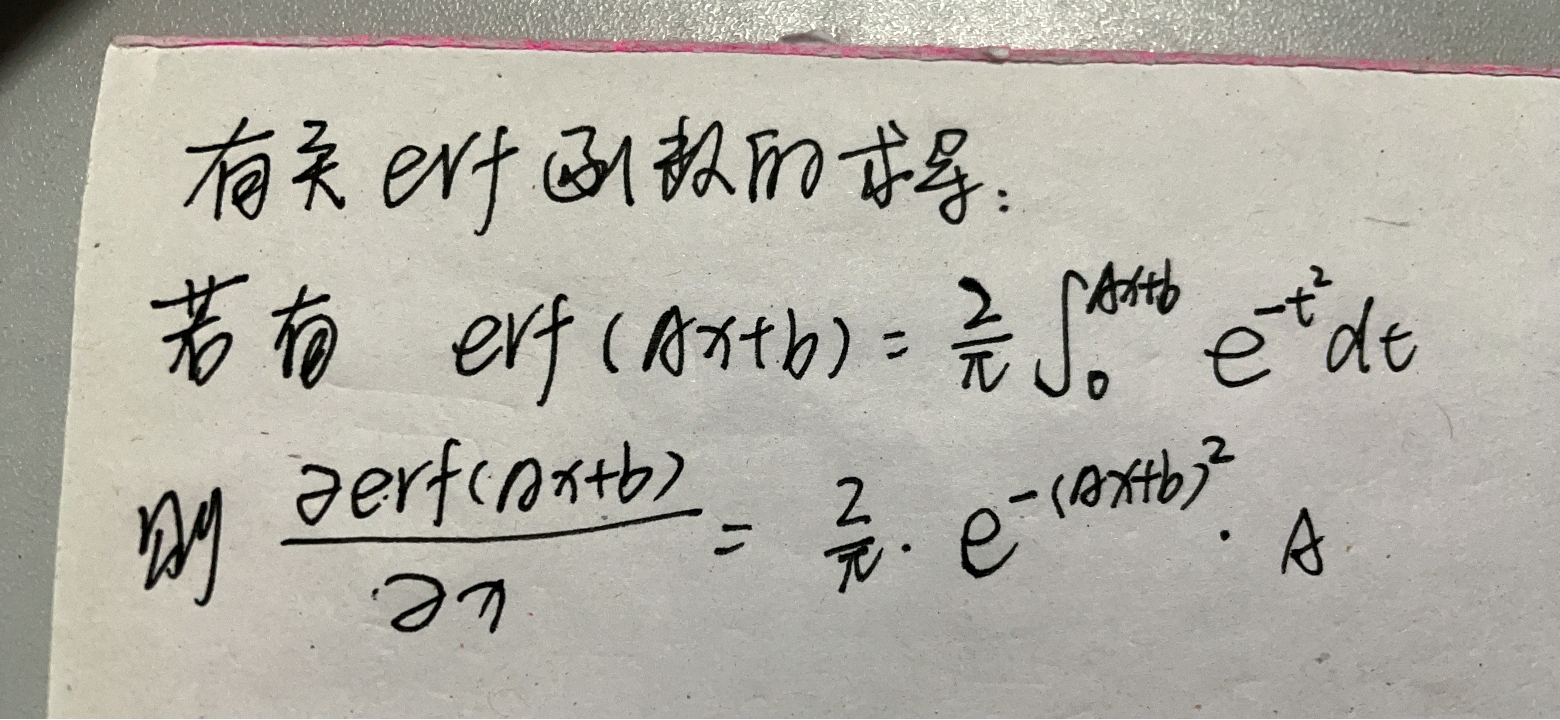 有关 erf 函数的求导:
若有 erf(Ax+b) = \frac{2}{\pi} \int_0^{Ax+b} e^{-t^2} dt
则 \frac{\partial erf(Ax+b)}{\partial x} = \frac{2}{\pi} \cdot e^{-(Ax+b)^2} \cdot A